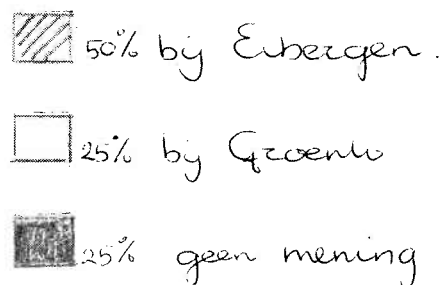 50% bij Eibergen.
25% bij Groenlo
25% geen mening